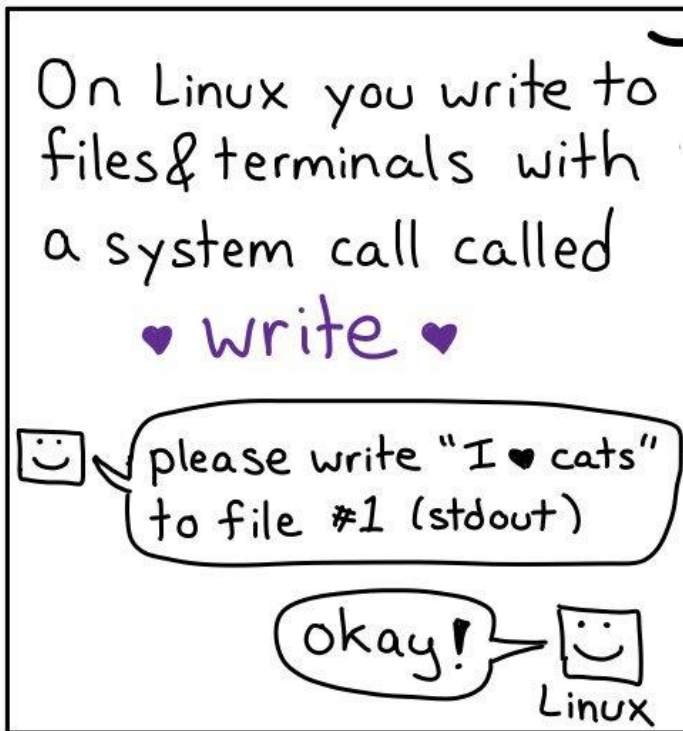 On Linux you write to
files & terminals with
a system call called
♥ write ♥
please write "I ♥ cats"
to file #1 (stdout)
okay!
Linux